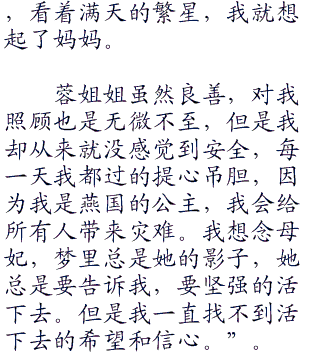 ，看着满天的繁星，我就想
起了妈妈。
蓉姐姐虽然良善，对我
照顾也是无微不至，但是我
却从来就没感觉到安全，每
一天我都过的提心吊胆，因
为我是燕国的公主，我会给
所有人带来灾难。我想念母
妃，梦里总是她的影子，她
总是要告诉我，要坚强的活
下去。但是我一直找不到活
下去的希望和信心。”。